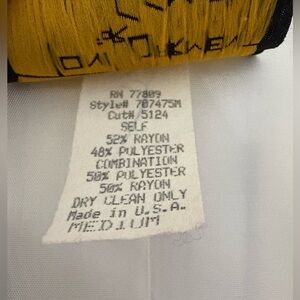 RN 77809
Style# 707475M
Cut# 5124
SELF
52% RAYON
48% POLYESTER
COMBINATION
50% POLYESTER
50% RAYON
DRY CLEAN ONLY
Made in U.S.A.
MEDIUM